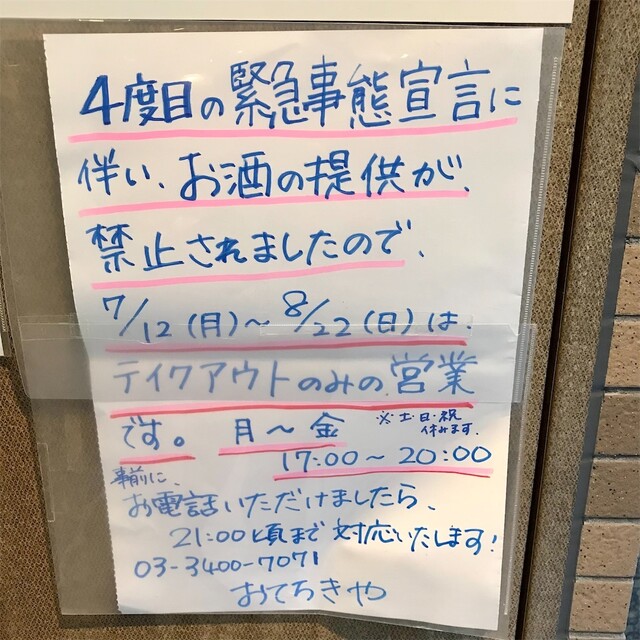 4度目の緊急事態宣言に
伴い、お酒の提供が、
禁止されましたので、
7/12(月)〜8/22(日)は、
テイクアウトのみの営業
です。月〜金 ※土・日・祝休みます。
17:00〜20:00
事前に、
お電話いただけましたら、
21:00頃まで対応いたします!
03-3400-7071
おてちきや